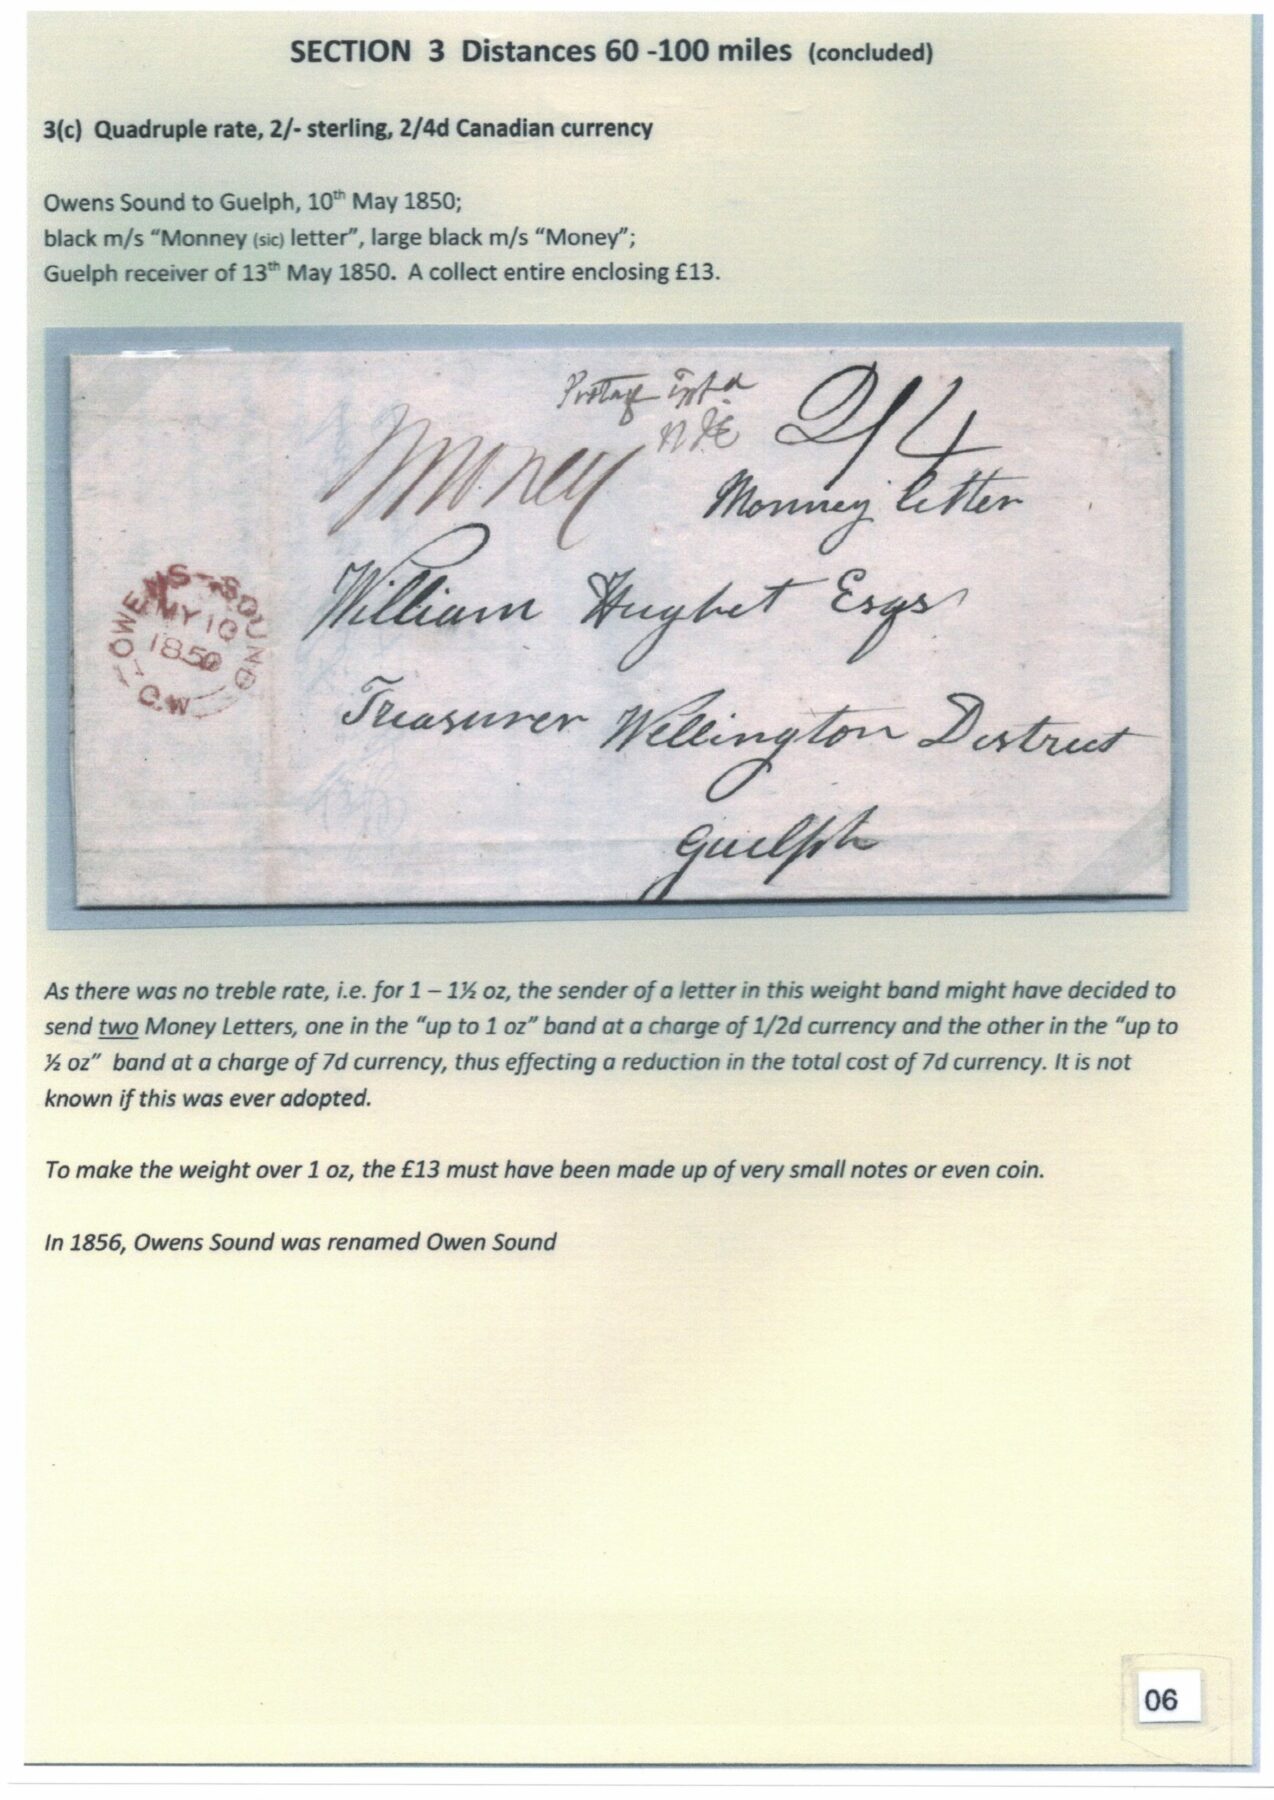 SECTION 3 Distances 60 -100 miles (concluded)
3(c) Quadruple rate, 2/- sterling, 2/4d Canadian currency
Owens Sound to Guelph, 10th May 1850;
black m/s “Monney (sic) letter”, large black m/s “Money”;
Guelph receiver of 13th May 1850. A collect entire enclosing £13.
Postage
2/4
Money
Monney letter
OWENS-SOUND
MY 10
1850
C.W
William Hughet Esqs
Treasurer Wellington District
Guelph
As there was no treble rate, i.e. for 1 – 1½ oz, the sender of a letter in this weight band might have decided to
send two Money Letters, one in the “up to 1 oz” band at a charge of 1/2d currency and the other in the “up to
½ oz” band at a charge of 7d currency, thus effecting a reduction in the total cost of 7d currency. It is not
known if this was ever adopted.
To make the weight over 1 oz, the £13 must have been made up of very small notes or even coin.
In 1856, Owens Sound was renamed Owen Sound
06